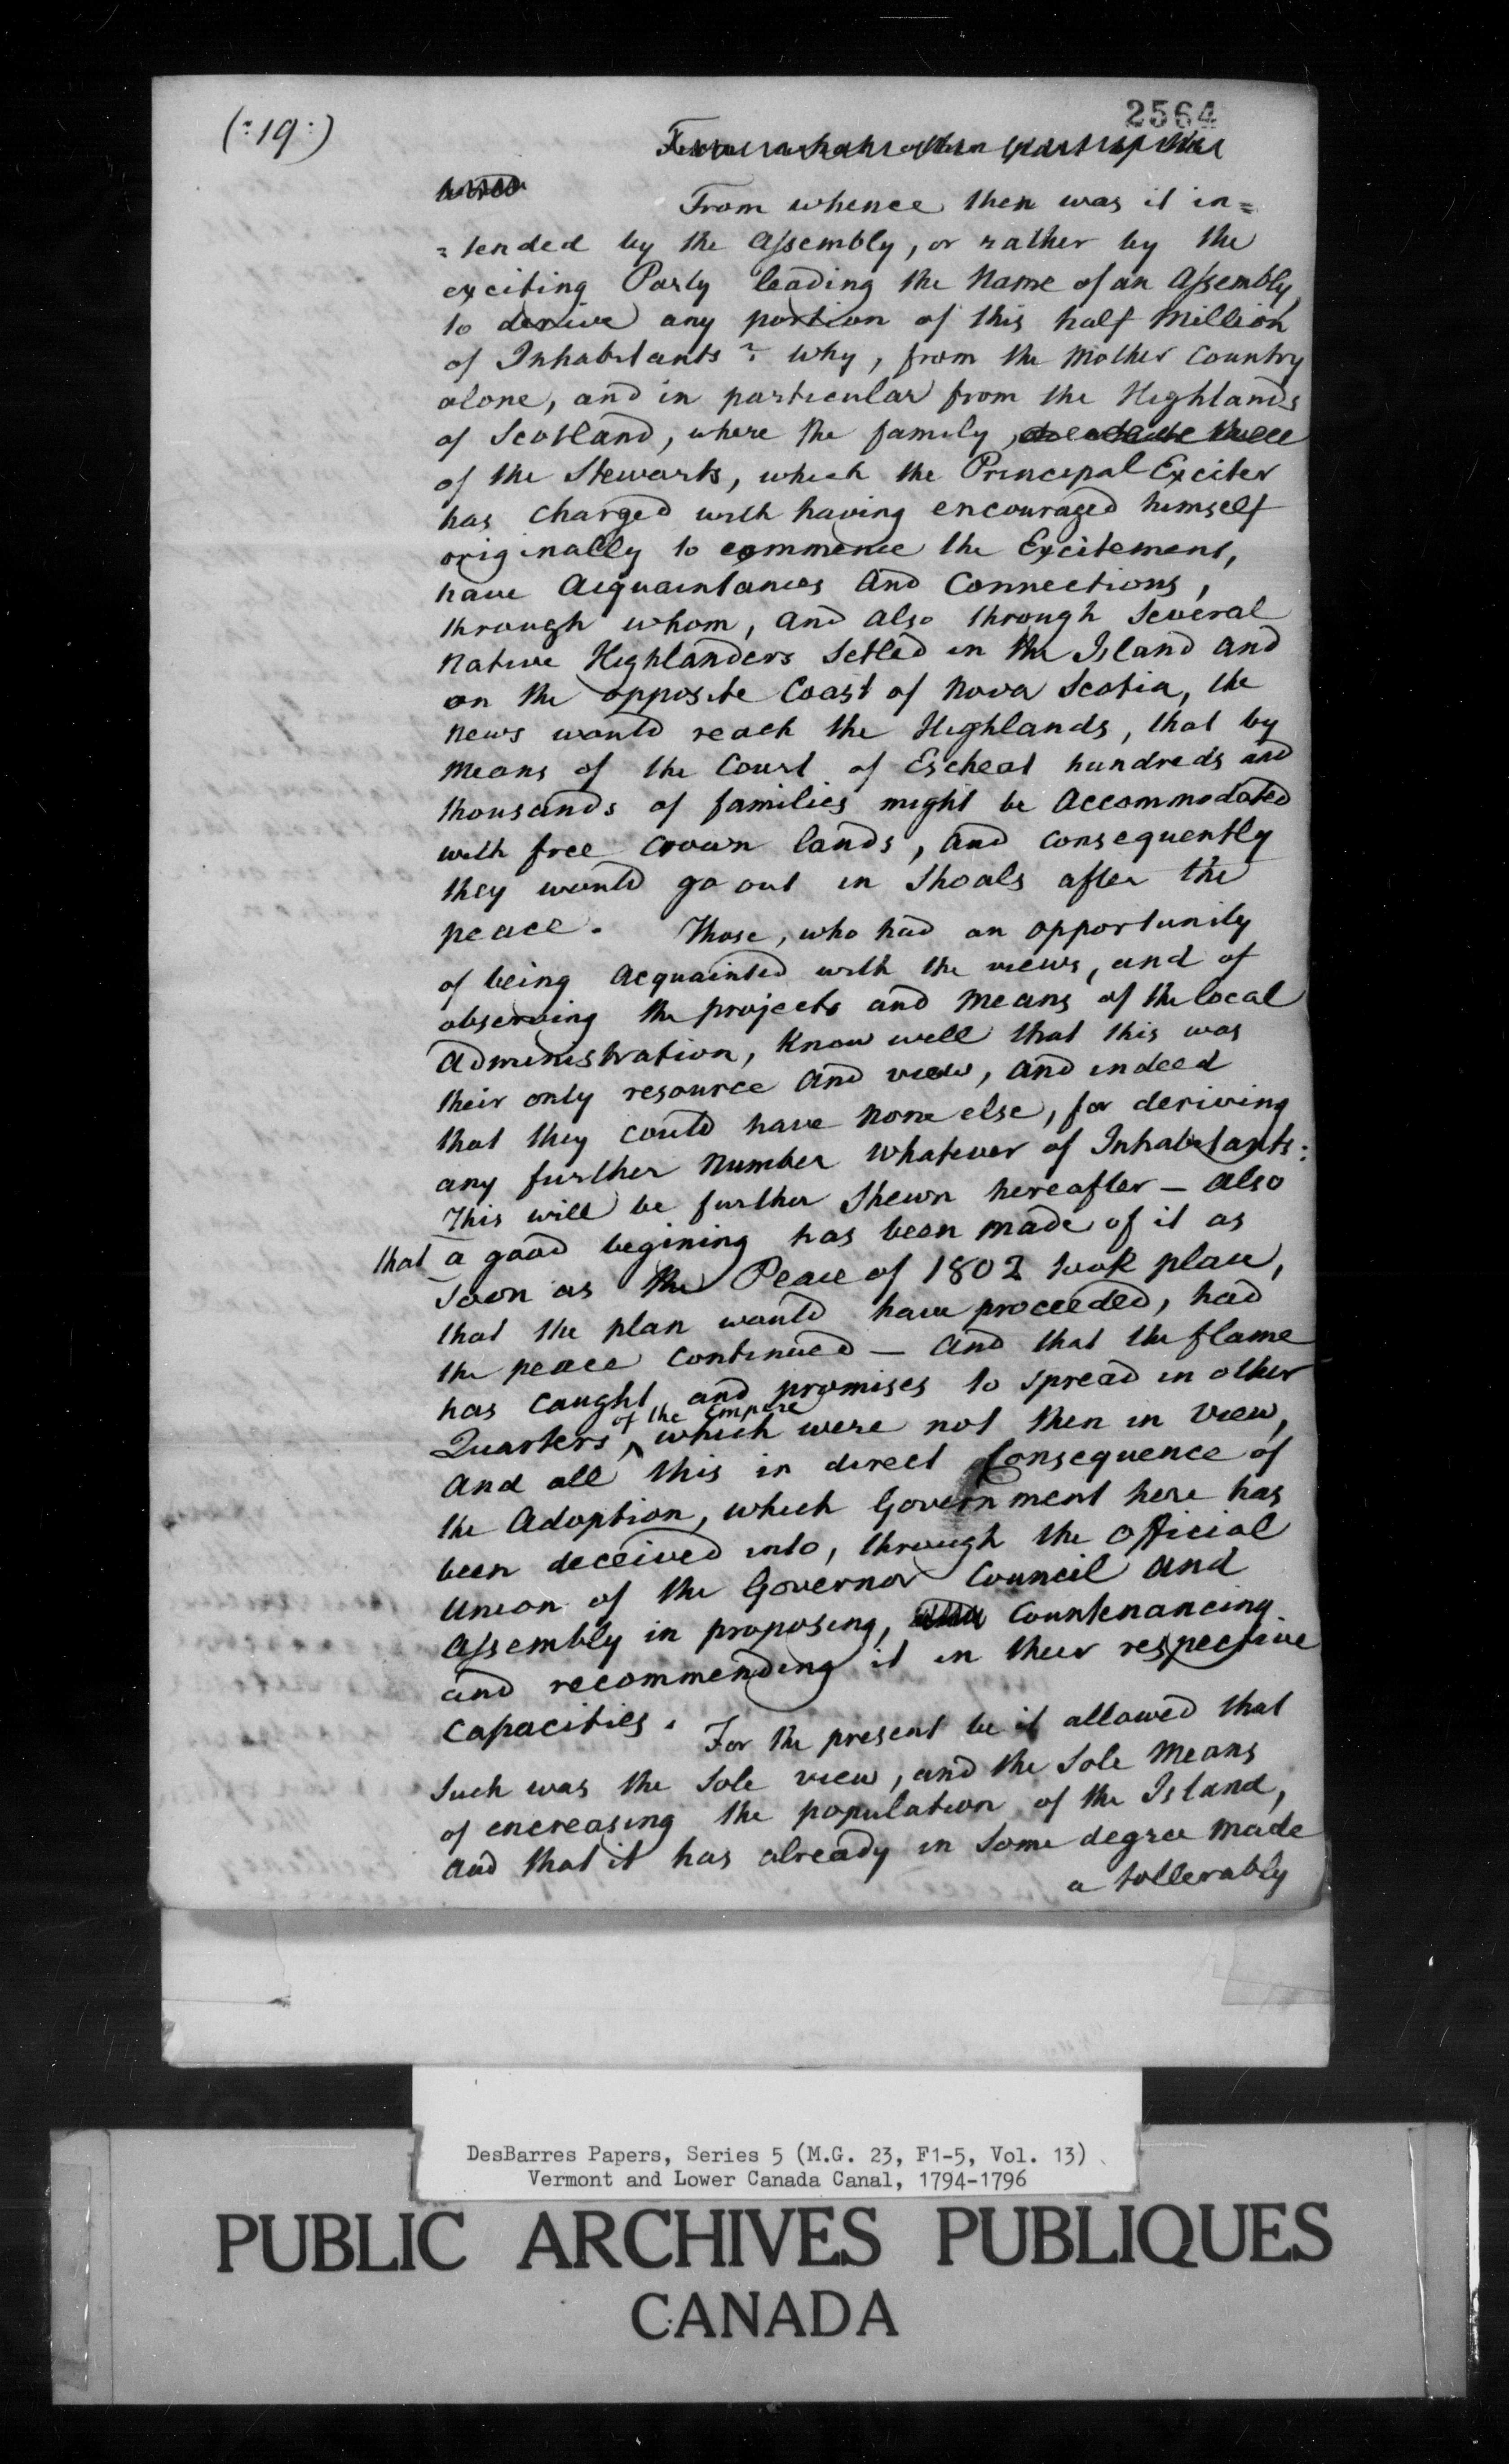 (:19:)
2564
From whence then was it in=
=tended by the Assembly, or rather by the
exciting Party leading the Name of an Assembly,
to derive any portion of this half Million
of Inhabitants? Why, from the Mother Country
alone, and in particular from the Highlands
of Scotland, where the family,
of the Stewarts, which the Principal Exciter
has Charged with having encouraged himself
originally to commence the Excitement,
have Acquaintances and Connections,
through whom, and also through Several
Native Highlanders Setled in the Island and
on the opposite Coast of Nova Scotia, the
News would reach the Highlands, that by
Means of the Court of Escheat hundreds and
thousands of families might be Accommodated
with free Crown lands, and Consequently
they would go out in Shoals after the
peace. Those, who had an opportunity
of being Acquainted with the views, and of
observing the projects and Means of the local
Administration, Know well that this was
their only resource and view, and indeed
that they could have None else, for deriving
any further Number Whatever of Inhabitants:
This will be further Shewn hereafter – Also
that a good begining has been Made of it as
Soon as the Peace of 1802 took place,
that the plan would have proceeded, had
the peace Continued – And that the flame
has caught and promises to Spread in other
Quarters of the Empire, which were not then in View,
And all this in direct Consequence of
the Adoption, which Government here has
been deceived into, through the Official
Union of the Governor Council and
Assembly in proposing, Countenancing
and recommending it in their respective
Capacities. For the present be it allowed that
Such was the Sole view, and the Sole Means
of encreasing the population of the Island,
and that it has already in Some degree Made
a tollerably
DesBarres Papers, Series 5 (M.G. 23, F1-5, Vol. 13)
Vermont and Lower Canada Canal, 1794-1796
PUBLIC ARCHIVES PUBLIQUES
CANADA